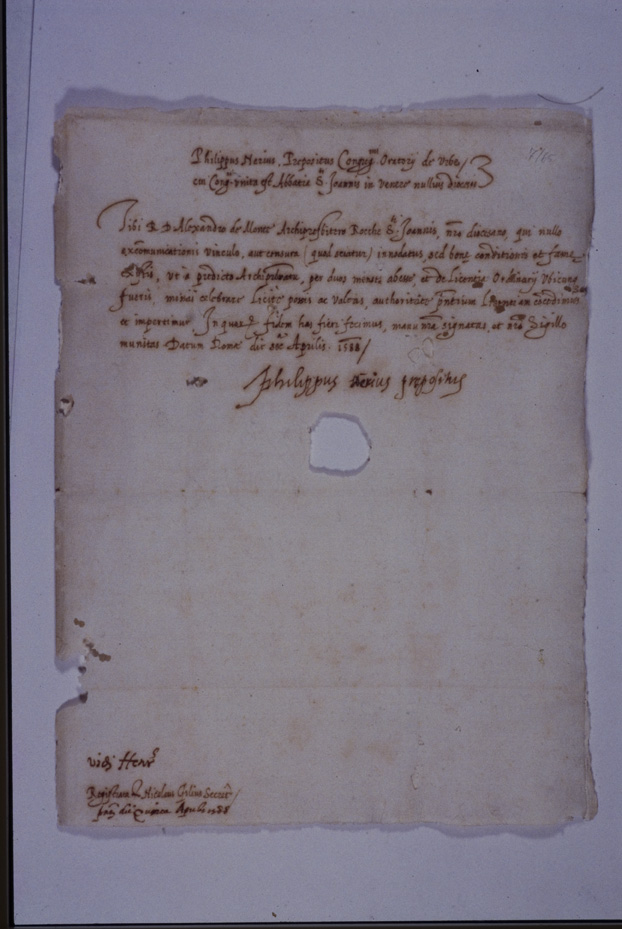 Philippus Nerius, Prepositus Congreg. Oratorij de Urbe
cui Cong. unita est Abbatia S. Joannis in Venere nullius diocesis
Tibi R. D. Alexandro de Archipresbitero Rocche S. Joannis, nre diocesis, qui nullo
excomunicationis vinculo, aut censura (quod sciatur) innodatus sed bone conditionis et fame
ut a predicto per duos menses abesse, et de licentia Ordinarij
fueris, missas celebrare licite possis ac valeas, authoritate licentiam concedimus
et impertimur. In quorum fidem has fieri fecimus, manu nra signatas, et nro Sigillo
munitas Datum Rome die Aprilis 1588
Philippus Nerius prepositus
vidi
Nicolaus Gilius Secret.
die Aprilis 1588